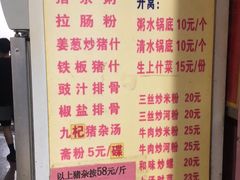 拉肠粉
姜葱炒猪什
铁板猪什
豉汁排骨
椒盐排骨
九杞猪杂汤
斋粉5元/碟
以上猪杂按58元/斤
粥水锅底10元/个
清水锅底10元/个
生上什菜15元/份
三丝炒米粉 20元
三丝炒河粉 20元
牛肉炒米粉 25元
牛肉炒河粉 25元
和味炒螺 20元